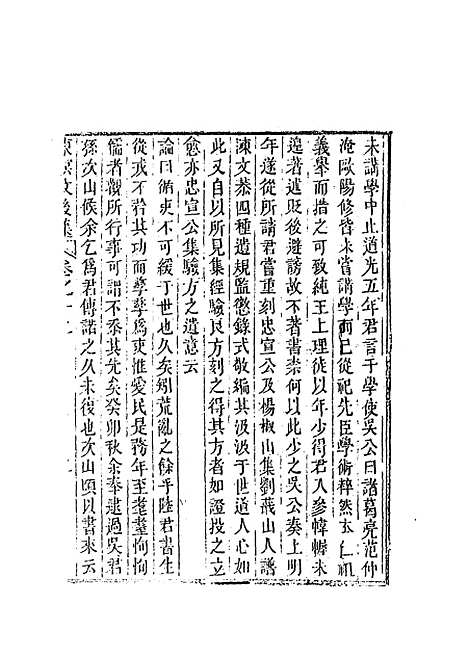 未講學中止道光五年君言于學使吳公曰諸葛亮范仲
淹歐陽修皆未嘗講學而已從祀先臣學術粹然
義舉而措之可致純王上理徒以年少得君入參幃幄未
遑著述貶後避謗故不著書柰何以此少之吳公奏上明
年遂從所請君嘗重刻忠宣公及楊椒山集劉蕺山人譜
陳文恭四種遺規監懲錄式敬編其汲汲于世道人心如
此又自以所見集經驗良方刻之得其方者如證投之立
愈亦忠宣公集驗方之遺意云
論曰循吏不可緩于世也久矣矧荒亂之餘乎陸君書生
從戎不矜其功而孳孳爲吏惟愛民是務年至耄耋恂恂
儒者觀所行事可謂不忝其先矣癸卯秋余奉逮過吳君
孫次山候余乞爲君傳諾之久未復也次山頃以書來云
東溟文後集 卷之十